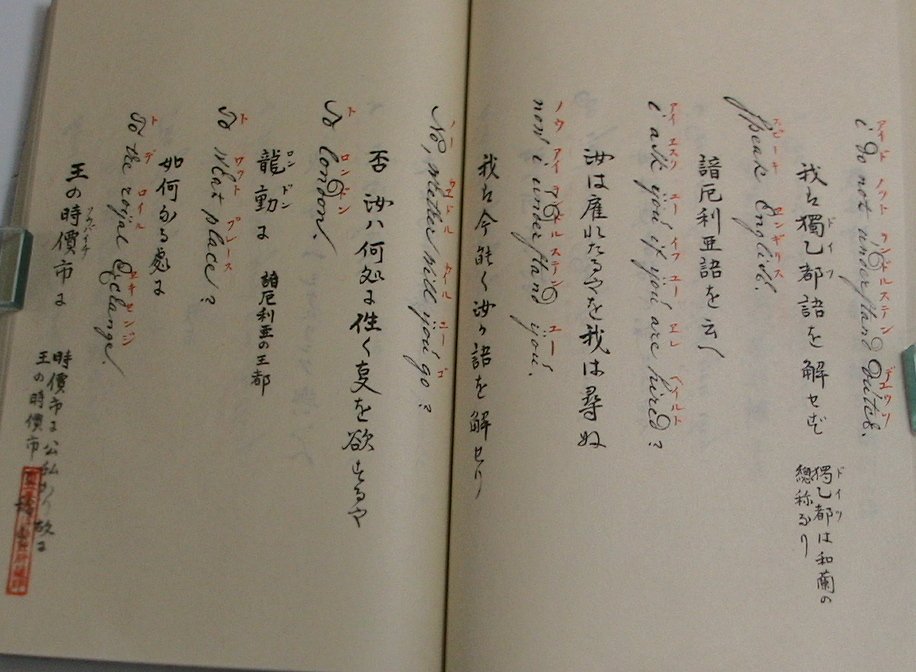 アイ ド ノット ヲンドルステン デユウツ
i do not understand duitsh.
我ハ獨乙都語を解せず
ドイツ
獨乙都は和蘭の
總称なり
スピーキ エンギリス
Speak English.
諳厄利亜語を云へ
アイ エスク ユー イフ ユー エレ ハイルト
i ask you if you are hired?
汝は雇れたるやを我は尋ぬ
ノウ アイ ヲンドルステン ユー
now i understand you.
我ハ今能く汝の語を解せり
No, wether will you go?
否 汝ハ何処に往く事を欲するや
ト ロンドン
To London.
ロンドン
龍動に 諳厄利亜の王都
ト ワット プレース
To what place?
如何なる處に
ト デ ロイル エキセンジ
To the roijal Exchange.
王の時價市に
時價市に公私あり故に
王の時價市